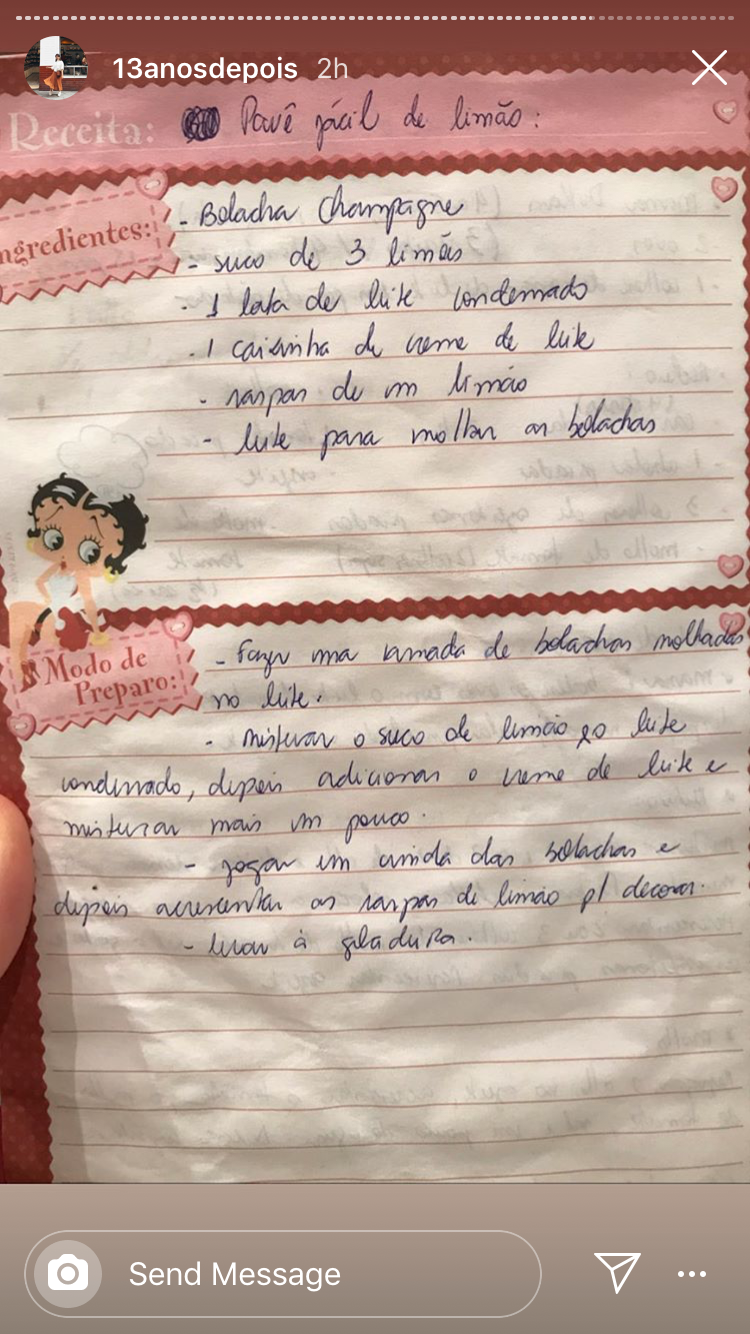 13anosdepois 2h
Receita: Pavê fácil de limão:
ngredientes:
- Bolacha Champagne
- suco de 3 limões
- 1 lata de leite condensado
- 1 caixinha de creme de leite
- raspas de um limão
- leite para molhar as bolachas
Modo de
Preparo:
- Fazer uma camada de bolachas molhadas
no leite.
- misturar o suco de limão e o leite
condensado, depois adicionar o creme de leite e
misturar mais um pouco.
- jogar em cima das bolachas e
depois acrescentar as raspas de limão p/ decorar.
- levar à geladeira.
Send Message